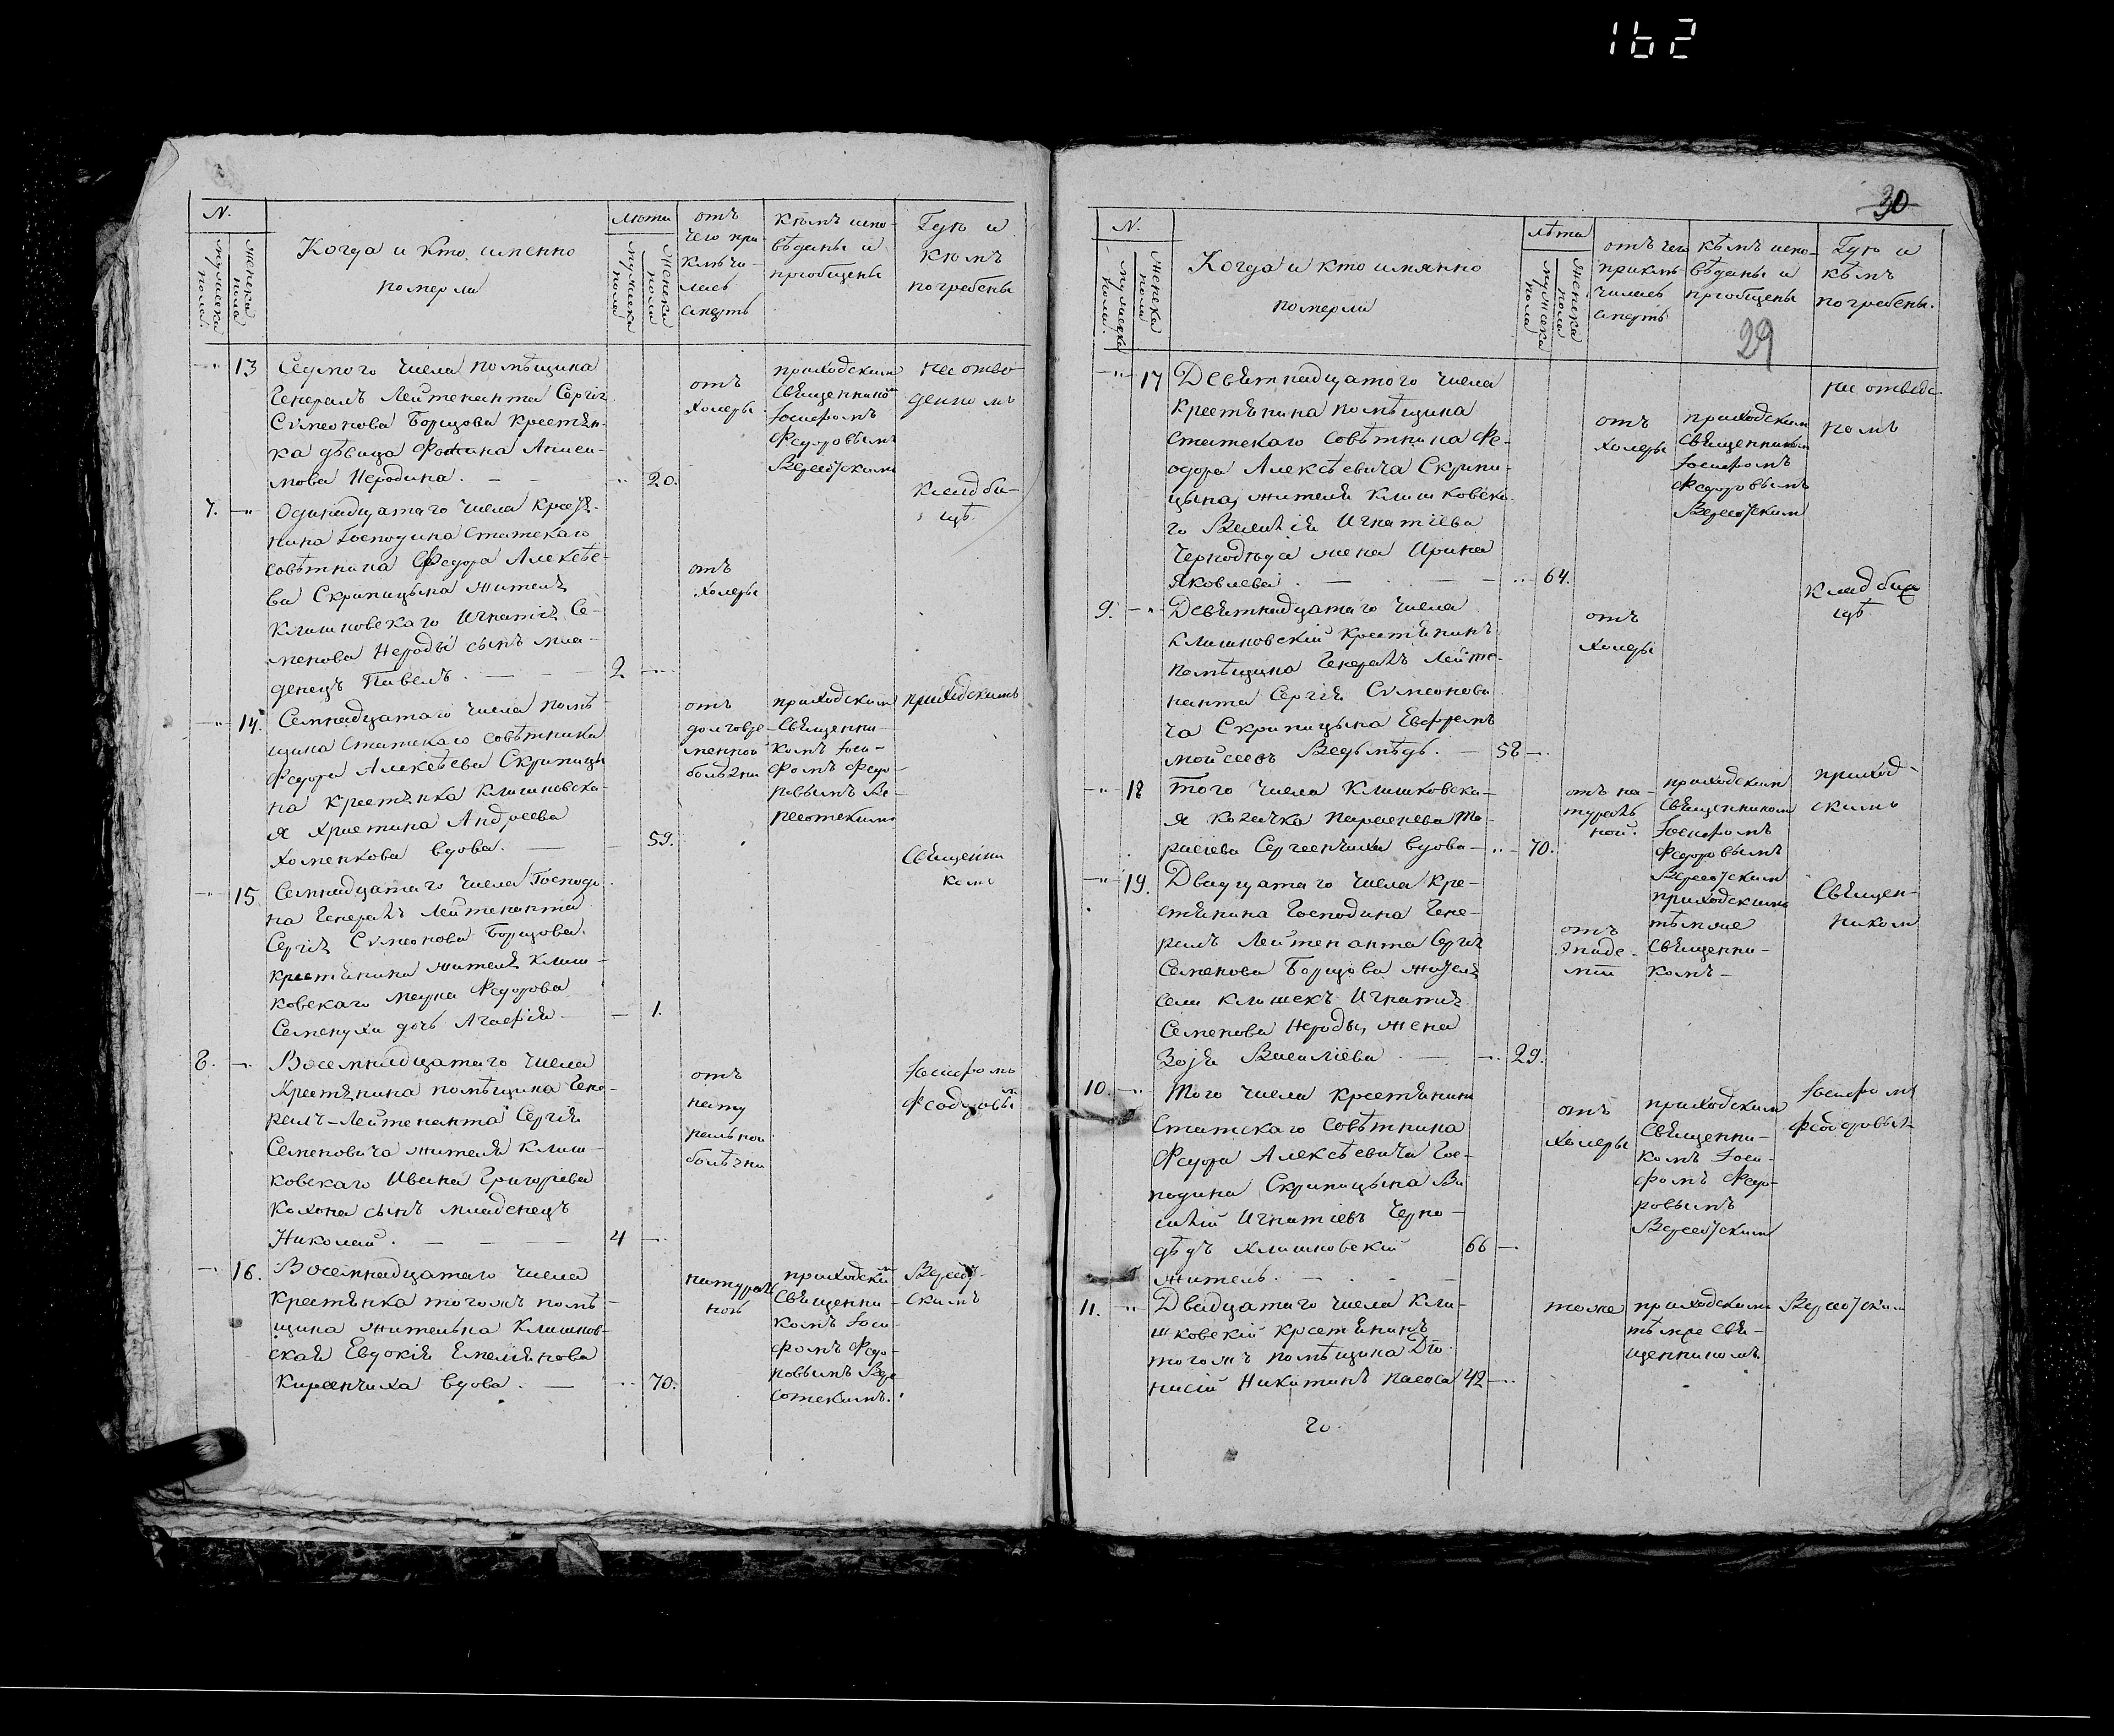 162
N.
мужеска полa.
женска пола
Когда и кто именно
померли
лѣта
мужеска пола
женска пола
отъ
чего при-
ключи-
лась
смерть
кѣмъ испо-
вѣданы и
пріобщены
Гдѣ и
кѣмъ
погребены
13
Седмого числа помѣщика
Генералъ Лейтенанта Сергія
Сѵмеонова Борщова крестьян-
ка дѣвица Фотина Аниси-
мова Неродина.
20.
отъ
холеры
приходскимъ
Священникомъ
Іосифомъ
Федоровымъ
Вересотскимъ
на отво-
денномъ
7.
Одинадцатаго числа крестья-
нина Господина Статскаго
совѣтника Федора Алексѣе-
ва Скрипицына жителя
Клишковскаго Игнатія Се-
менова Нероды сынъ мла-
денецъ Павелъ.
2
отъ
холеры
кладби-
щѣ
14.
Семнадцатаго числа помѣ-
щика Статскаго совѣтника
Федора Алексѣева Скрипицы-
на крестьянка Клишковска-
я Христина Андреева
Хоменкова вдова.
59.
отъ
долговре-
менной
болѣзни
приходскимъ
Священни-
комъ Іоси-
фомъ Федо-
ровымъ Ве-
ресотскимъ
приходскимъ
15
Семнадцатаго числа Господи-
на Генералъ Лейтенанта
Сергія Сѵмеонова Борщова.
крестьянина жителя Клиш-
ковскаго Марка Федорова
Семенухи дочь Агафія
1.
Священни
комъ
8.
Восемнадцатаго числа
Крестьянина помѣщика Гене-
ралъ-Лейтенанта Сергія
Семеновича жителя Клиш-
ковскаго Ивана Григорьева
Кохона сынъ младенецъ
Николай.
4
отъ
нату
ральной
болѣзни
Іосифомъ
Феодоровым
16.
Восемнадцатаго числа
крестьянка тогожъ помѣ-
щика жителька Клишков-
ская Евдокія Емельянова
Киреенчиха вдова.
70.
натураль
ной
приходским
Священни-
комъ Іоси-
фомъ Федо-
ровымъ Вере
сотскимъ.
Вересот-
скимъ
30
N.
мужеска пола.
женска пола
Когда и кто имянно
померли
лѣта
мужеска пола
женска пола
отъ чего
приклю-
чилась
смерть
кѣмъ испо-
вѣданы и
пріобщены
29
Гдѣ и
кѣмъ
погребены.
17
Девятнадцатого числа
крестьянина помѣщика
статскаго совѣтника Фе-
одора Алексѣевича Скрипи-
цына, жителя Клишковска-
го Василія Игнатіева
Чернодѣда жена Ирина
Яковлева.
64.
отъ
холеры
приходскимъ
Священникомъ
Іосифомъ
Федоровымъ
Вересотским
на отведе-
номъ
9.
Девятнадцатаго числа
Клишковскій крестьянинъ
помѣщика Генералъ Лейте-
нанта Сергія Сѵмеонови
ча Скрипицына Евфремъ
Мойсеевъ Ведьмѣдь.
58
отъ
холеры
кладби
щѣ
18
Того числа Клишковска-
я козачка
Сергеенчиха вдова
70.
отъ на-
тураль
ной.
приходским
Священником
Іосифомъ
Федоровымъ
Вересотским
приход-
скимъ
19.
Двадцатаго числа кре-
стьянина Господина Гене-
ралъ Лейтенанта Сергія
Семенова Борщова жителя
села Клишекъ Игнатія
Семенова Нероды, жена
Василіева
29.
отъ
эпиде-
міи
приходскимъ
тѣмже
Священни-
комъ
Священ-
ником
10.
Того числа крестьянинъ
Статскаго Совѣтника
Федора Алексѣевича Гос-
подина Скрипицына Ва
силій Игнатіевъ Черно-
дѣдъ Клишковскій
житель.
66
отъ
холеры
приходским
Священни-
комъ Іоси-
фомъ Федо-
ровымъ
Вересотским
Іосифомъ
Феодоровым
11.
Двадцатаго числа Кли-
шковскій крестьянинъ
тогожъ помѣщика Діо-
нисій Никитинъ
42
тоже
приходскимъ
тѣмже Свя-
щенникомъ
Вересотским